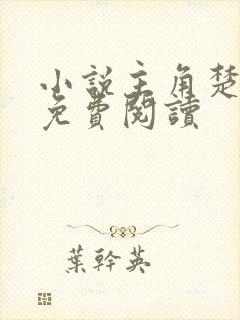 小說主角楚
免費閱讀
葉幹英